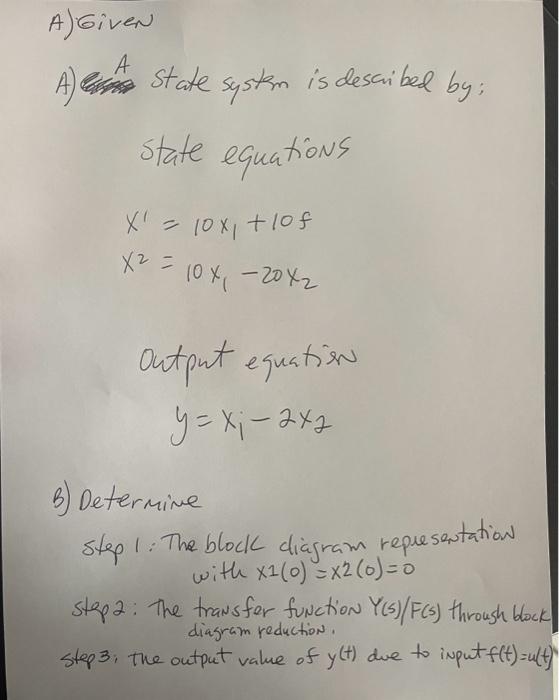 A) Given
A) A State system is described by;
State equations
x' = 10x₁ + 10f
x² = 10x₁ - 20x₂
Output equation
y = x₁ - 2x₂
B) Determine
Step 1: The block diagram representation
with x1(0) = x2(0) = 0
Step 2: The transfer function Y(s)/F(s) through block
diagram reduction.
Step 3; The output value of y(t) due to input f(t)=u(t)